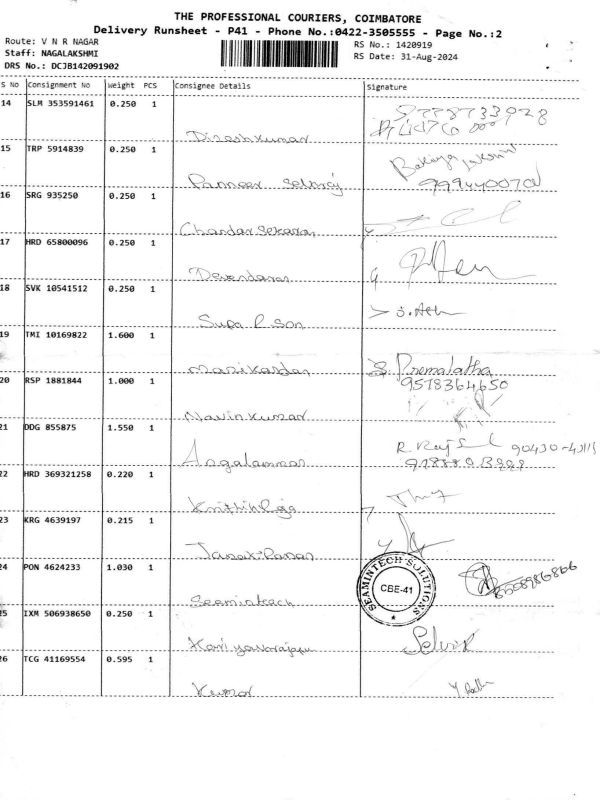 THE PROFESSIONAL COURIERS, COIMBATORE
Delivery Runsheet - P41 - Phone No.:0422-3505555 - Page No.:2
Route: V N R NAGAR
Staff: NAGALAKSHMI
DRS No.: DCJB142091902
RS No.: 1420919
RS Date: 31-Aug-2024
S No Consignment No Weight PCS Consignee Details Signature
14 SLM 353591461 0.250 1
Dineshkumar
15 TRP 5914839 0.250 1
Panneer Selvaj
16 SRG 935250 0.250 1
Chandar Sekaran
17 HRD 65800096 0.250 1
Devendaran
18 SVK 10541512 0.250 1
Supa R son
19 TMI 10169822 1.600 1 S. Premalatha
Manikandan 9578364650
20 RSP 1881844 1.000 1
Navin kumar
21 DDG 855875 1.550 1 90430-43115
Angalamman
22 HRD 369321258 0.220 1
Krithik Raja
23 KRG 4639197 0.215 1
24 PON 4624233 1.030 1 SEAMINTECH SOLUTIONS CBE-41
Seamintech
25 IXM 506938650 0.250 1
Selvi
26 TCG 41169554 0.595 1
Kumar